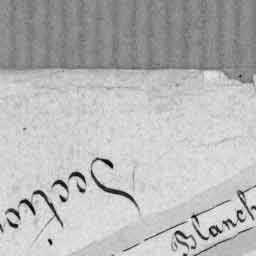 Section
Blanch